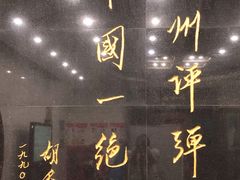 州评弹
中國一绝
胡
一九九〇